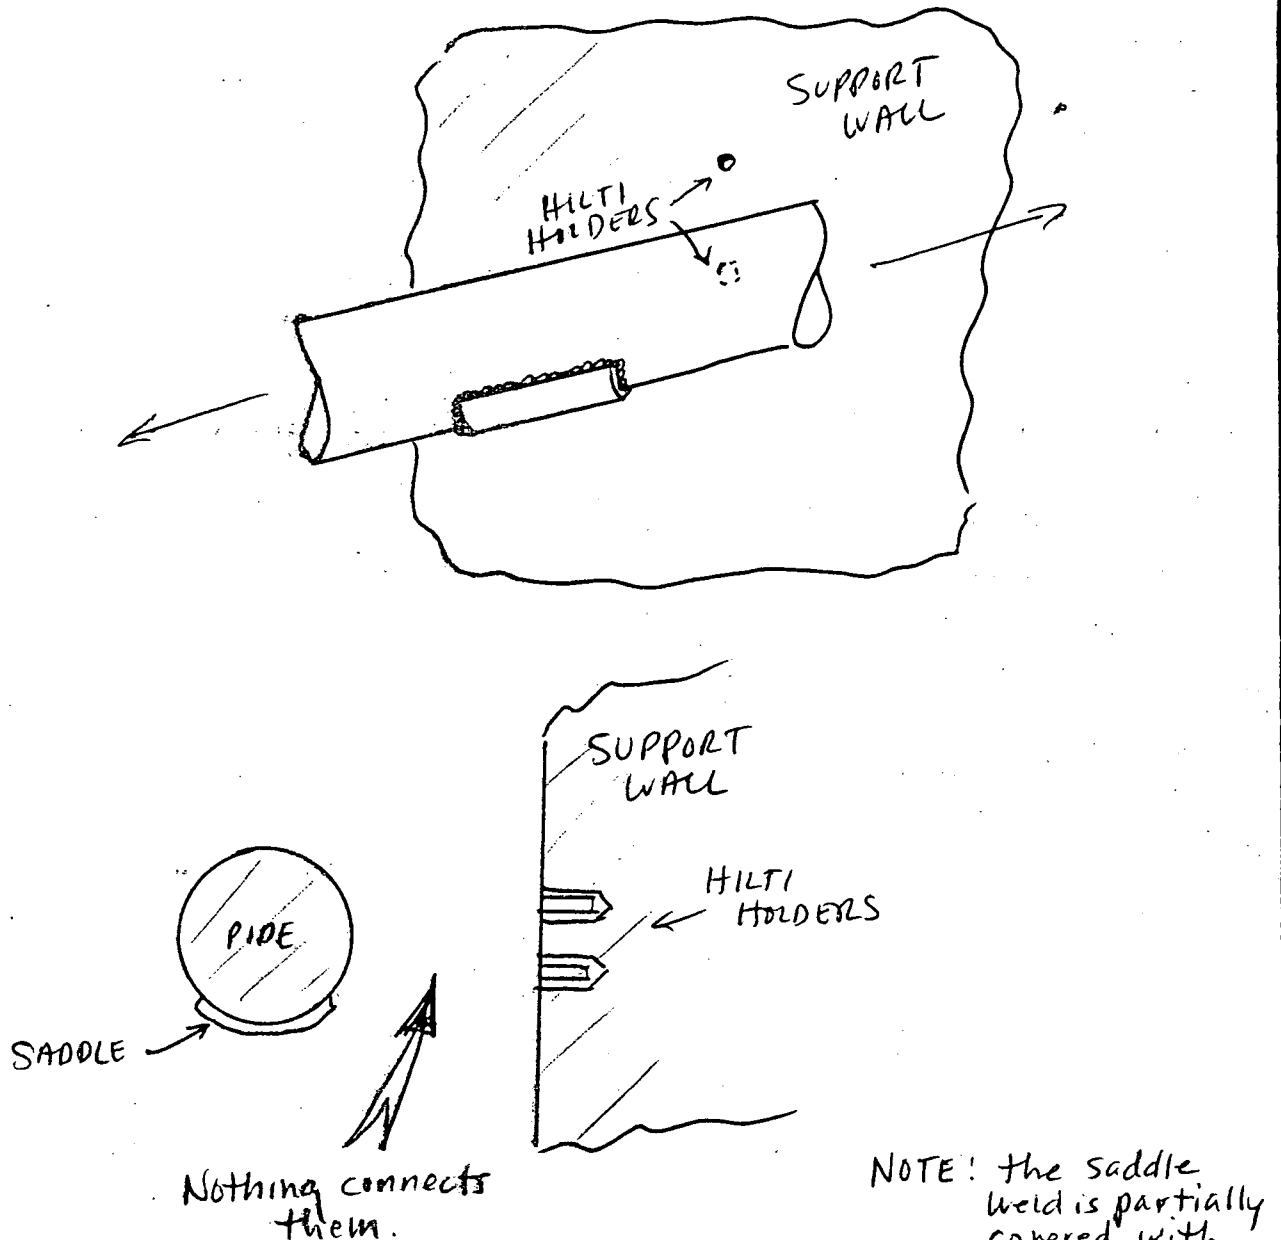 SUPPORT
WALL
HILTI
HOLDERS
SUPPORT
WALL
HILTI
HOLDERS
PIPE
SADDLE
Nothing connects
them.
NOTE: the saddle
weld is partially
covered with